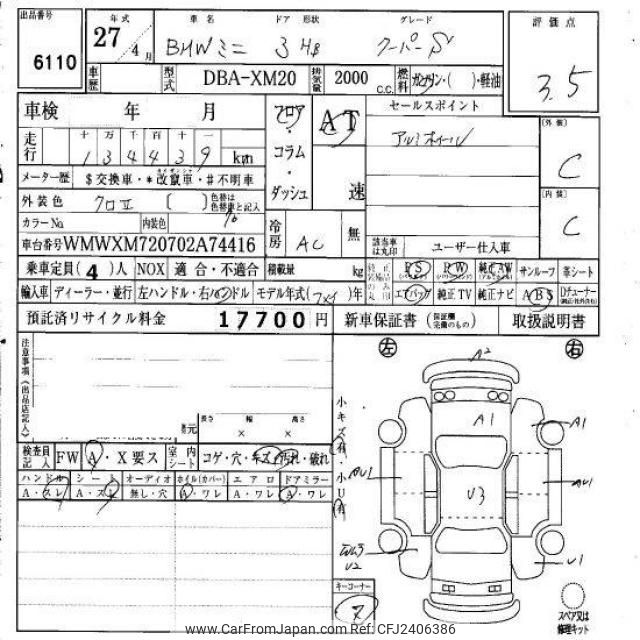 出品番号
6110
年式
27年
4月
車名
BMWミニ
ドア 形状
3 HB
グレード
クーパーS
評価点
3.5
車歴
型式
DBA-XM20
排気量
2000 C.C.
燃料
ガソリン・( )・軽油
車検 年 月
フロア・コラム・ダッシュ
AT
速
セールスポイント
アルミホイール
[外装]
C
[内装]
C
走行
十万千百十一
134439 km
メーター歴
$交換車・*改竄車・#不明車
外装色
クロII
( )
色替は色替車と記入
カラーNo
内装色
冷房
AC
無
該当車は丸印
ユーザー仕入車
車台番号 WMWXM720702A74416
乗車定員(4)人
NOX 適合・不適合
積載量
kg
PS
PW
純正AW
サンルーフ
革シート
輸入車
ディーラー・並行
左ハンドル・右ハンドル
モデル年式( )年
エアバッグ
純正TV
純正ナビ
ABS
Dチューナー
預託済リサイクル料金
17700円
新車保証書(保証欄完備のもの)
取扱説明書
注意事項(出品店記入)
長さ 幅 高さ
× ×
小キズ有・小U有
左
右
A2
A1
A1
AU1
U3
AU1
U2
U1
検査員記入
FW
A・X要ス
室内シート
コゲ・穴・キズ・汚れ・破れ
ハンドル
シート
オーディオ
ホイル(カバー)
エアロ
ドアミラー
A・スレ
A・スレ
無し・穴
A・ワレ
A・ワレ
A・ワレ
キーコーナー
7
スペア又は修理キット
www.CarFromJapan.com Ref:CFJ2406386